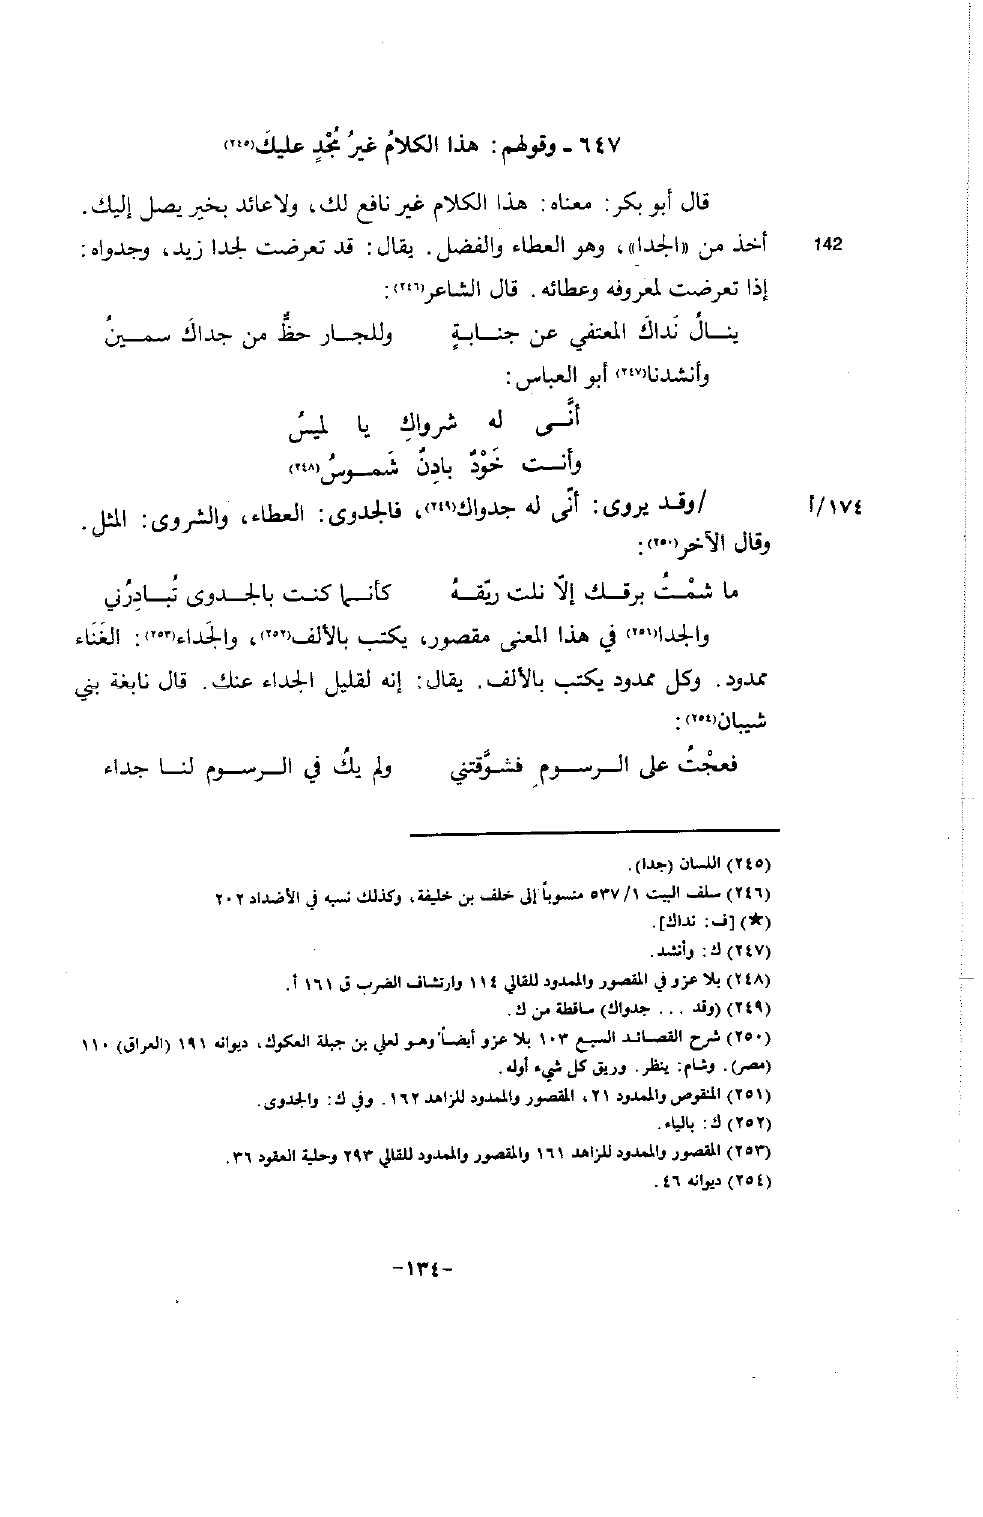 ٦٤٧ - وقولهم: هذا الكلامُ غيرُ مُجْدٍ عليكَ(٢٤٥)
قال أبو بكر: معناه: هذا الكلام غير نافع لك، ولا عائد بخير يصل إليك.
142 أخذ من «الجدا»، وهو العطاء والفضل. يقال: قد تعرضت لجدا زيد، وجدواه:
إذا تعرضت لمعروفه وعطائه. قال الشاعر(٢٤٦):
ينالُ نَداكَ المعتفي عن جنابةٍ وللجار حظٌّ من جداكَ سمينُ
وأنشدنا(٢٤٧) أبو العباس:
أنَّى له شرواكِ يا لميسُ
وأنت خَوْدٌ بادِنٌ شَموسُ(٢٤٨)
١٧٤/أ /وقد يروى: أنّى له جدواك(٢٤٩)، فالجدوى: العطاء، والشروى: المثل.
وقال الآخر(٢٥٠):
ما شمْتُ برقك إلّا نلت ريّقهُ كأنما كنت بالجدوى تُبادِرُني
والجدا(٢٥١) في هذا المعنى مقصور، يكتب بالألف(٢٥٢)، والجَداء(٢٥٣): الغَنَاء
ممدود. وكل ممدود يكتب بالألف. يقال: إنه لقليل الجداء عنك. قال نابغة بني
شيبان(٢٥٤):
فعجْتُ على الرسومِ فشوَّقتني ولم يكُ في الرسوم لنا جداء
(٢٤٥) اللسان (جدا).
(٢٤٦) سلف البيت ١/ ٥٣٧ منسوباً إلى خلف بن خليفة، وكذلك نسبه في الأضداد ٢٠٢
(★) [ف: نداك].
(٢٤٧) ك: وأنشد.
(٢٤٨) بلا عزو في المقصور والممدود للقالي ١١٤ وارتشاف الضرب ق ١٦١ أ.
(٢٤٩) (وقد ... جدواك) ساقطة من ك.
(٢٥٠) شرح القصائد السبع ١٠٣ بلا عزو أيضاً وهو لعلي بن جبلة العكوك، ديوانه ١٩١ (العراق) ١١٠
(مصر). وشام: ينظر. وريق كل شيء أوله.
(٢٥١) المنقوص والممدود ٢١، المقصور والممدود للزاهد ١٦٢. وفي ك: والجدوى.
(٢٥٢) ك: بالياء.
(٢٥٣) المقصور والممدود للزاهد ١٦١ والمقصور والممدود للقالي ٢٩٣ وحلية العقود ٣٦.
(٢٥٤) ديوانه ٤٦.
-١٣٤-